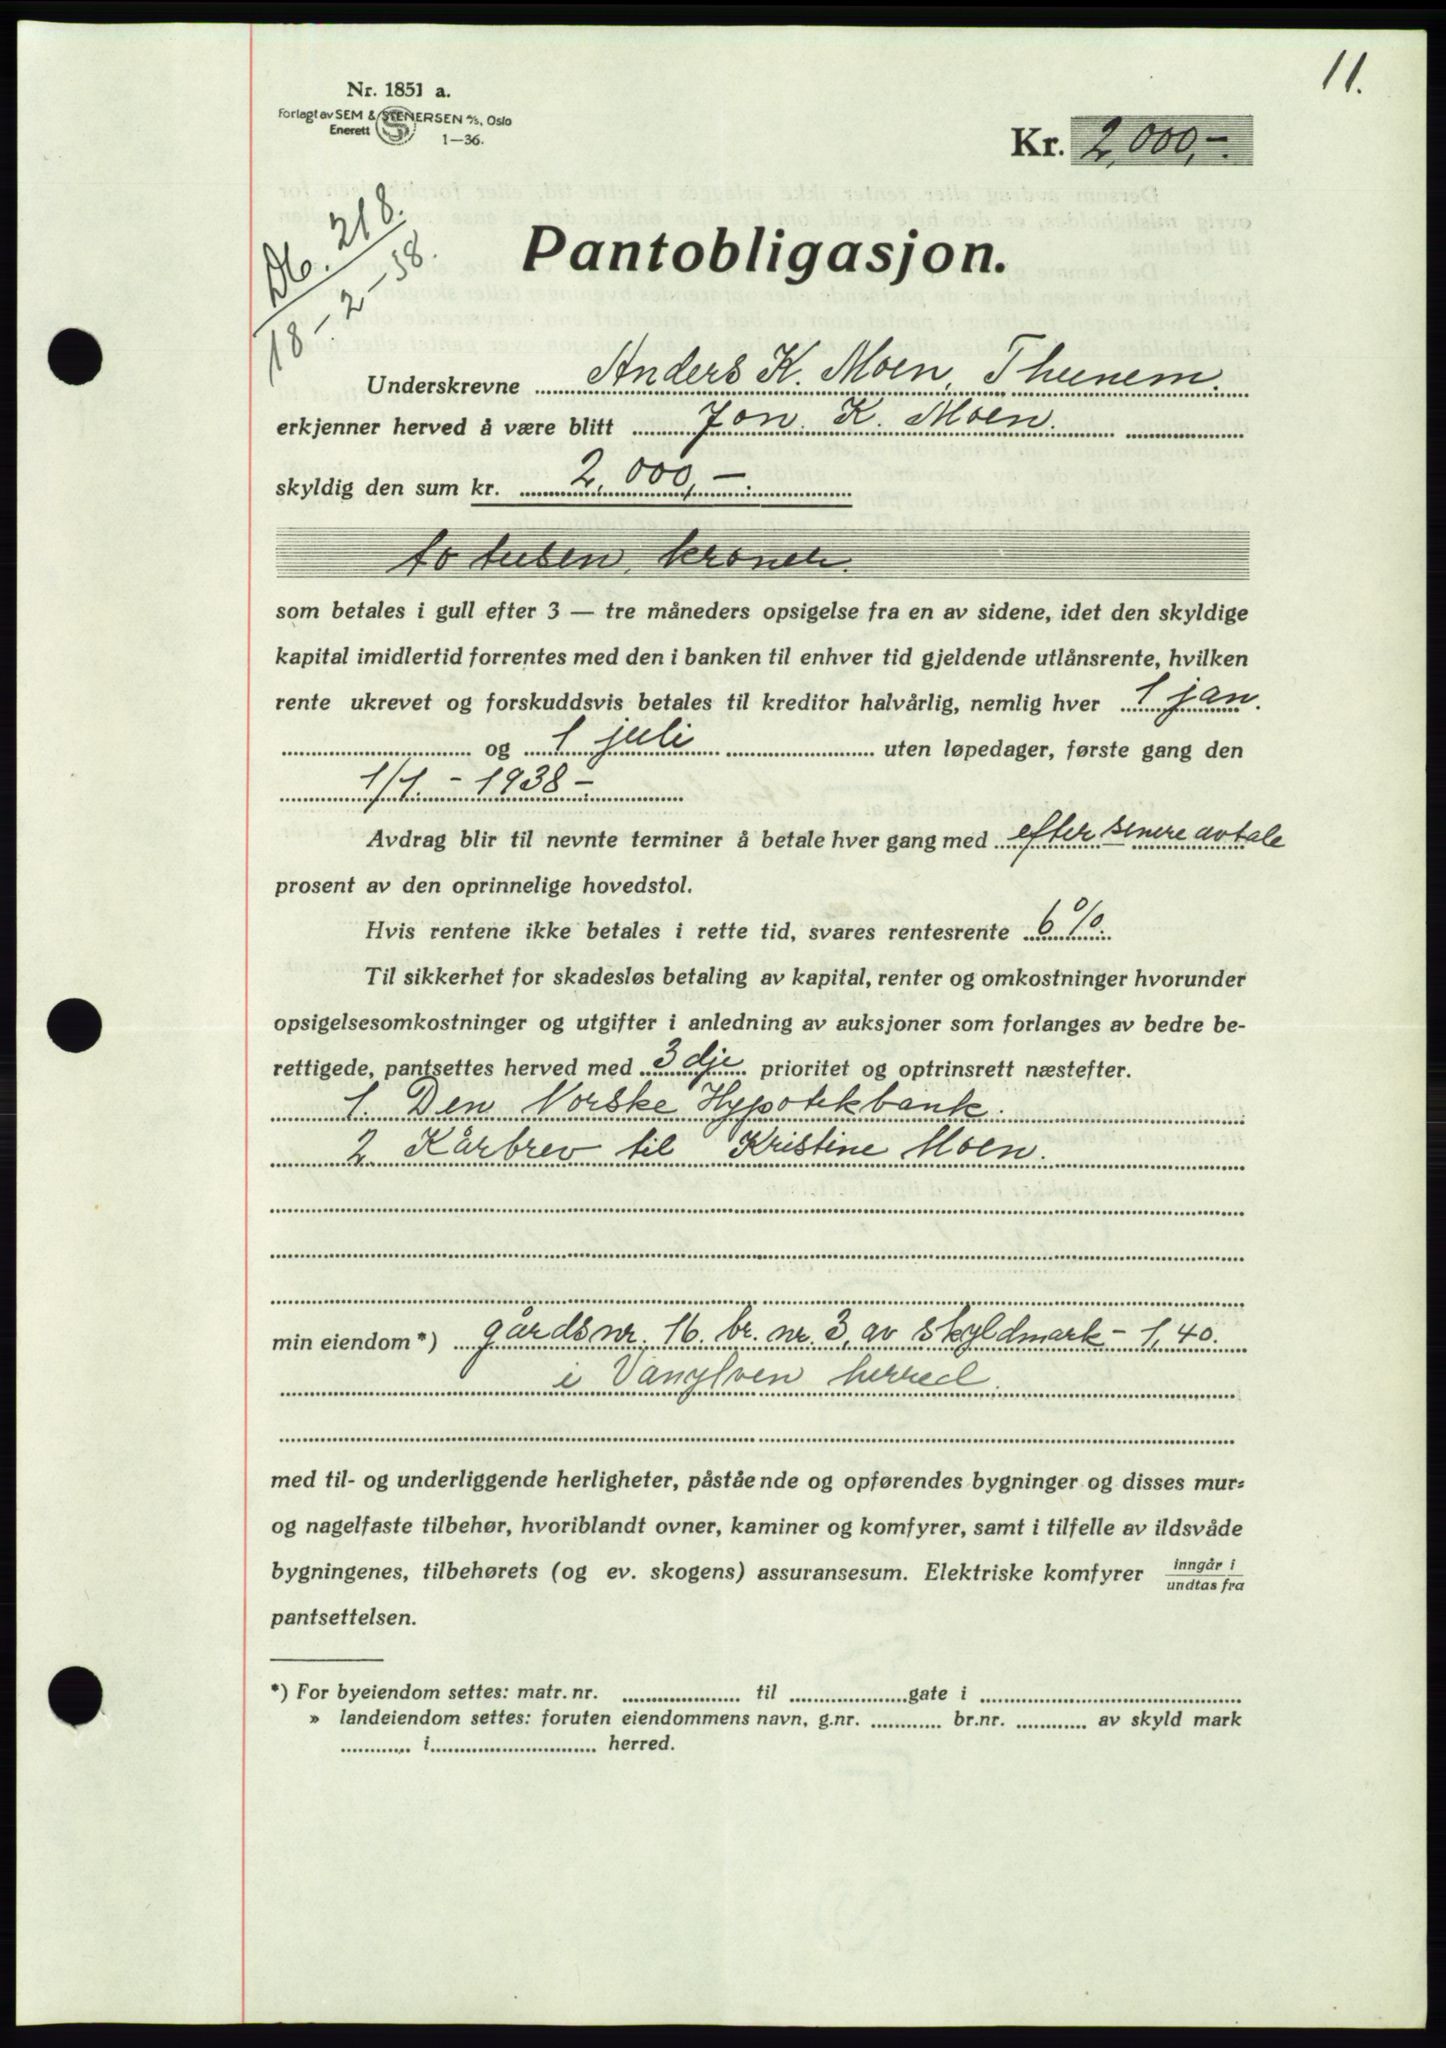 11.
Nr. 1851 a.
Forlagt av SEM & STENERSEN A/S, Oslo
Enerett
1—36.
Kr. 2,000,-.
Db. 218.
18-2-38.
Pantobligasjon.
Underskrevne Anders K. Moen, Thunem.
erkjenner herved å være blitt Jon. K. Moen.
skyldig den sum kr. 2,000,-.
to tusen kroner.
som betales i gull efter 3 — tre måneders opsigelse fra en av sidene, idet den skyldige
kapital imidlertid forrentes med den i banken til enhver tid gjeldende utlånsrente, hvilken
rente ukrevet og forskuddsvis betales til kreditor halvårlig, nemlig hver 1 jan.
og 1 juli uten løpedager, første gang den
1/1. - 1938 -
Avdrag blir til nevnte terminer å betale hver gang med efter senere avtale
prosent av den oprinnelige hovedstol.
Hvis rentene ikke betales i rette tid, svares rentesrente 6%.
Til sikkerhet for skadesløs betaling av kapital, renter og omkostninger hvorunder
opsigelsesomkostninger og utgifter i anledning av auksjoner som forlanges av bedre be-
rettigede, pantsettes herved med 3dje prioritet og optrinsrett næstefter.
1. Den Norske Hypotekbank.
2 Kårbrev til Kristine Moen.
min eiendom *) gårdsnr. 16. br. nr. 3, av skyldmark - 1,40.
i Vanylven herred.
med til- og underliggende herligheter, påstående og opførendes bygninger og disses mur-
og nagelfaste tilbehør, hvoriblandt ovner, kaminer og komfyrer, samt i tilfelle av ildsvåde
bygningenes, tilbehørets (og ev. skogens) assuransesum. Elektriske komfyrer inngår i
undtas fra
pantsettelsen.
*) For byeiendom settes: matr. nr. til gate i
» landeiendom settes: foruten eiendommens navn, g.nr. br.nr. av skyld mark
i herred.